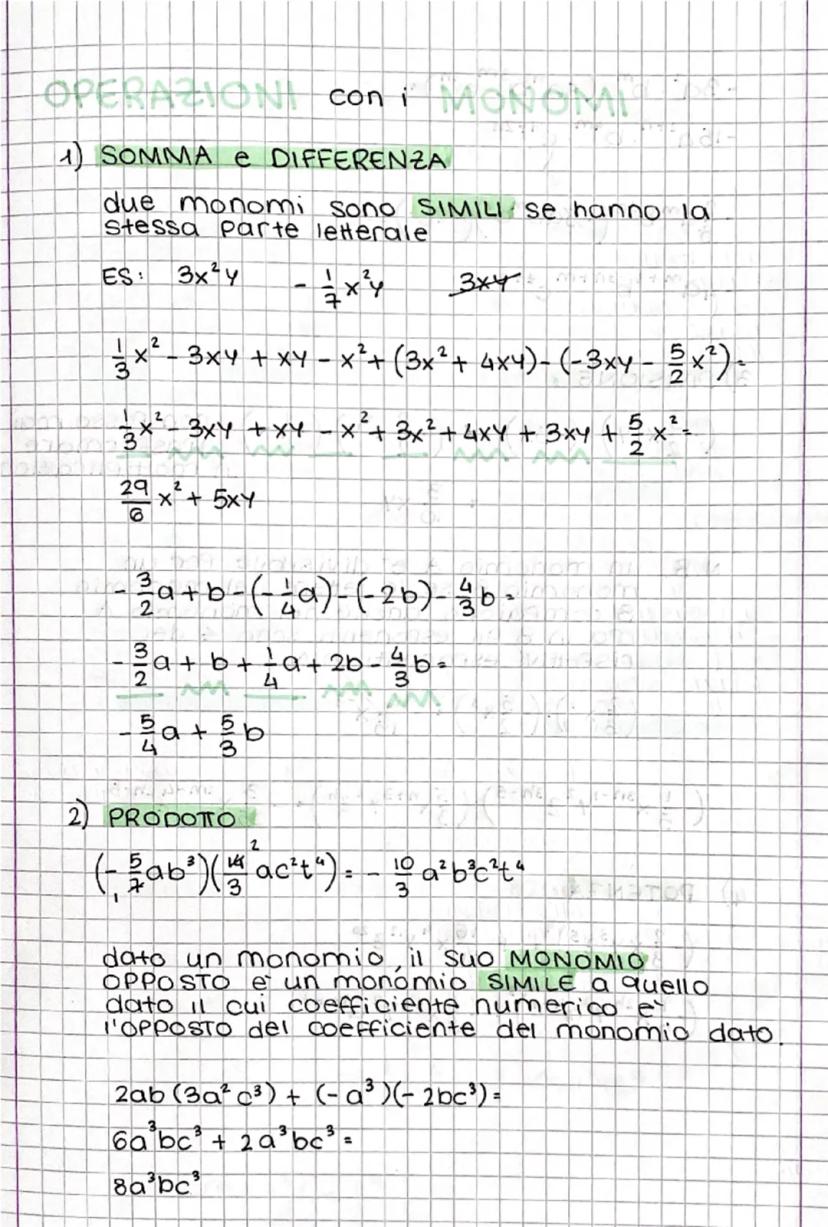 OPERAZIONI con i MONOMI
1) SOMMA e DIFFERENZA
due monomi sono SIMILI se hanno la
stessa parte letterale
ES: 3x²y - 1/7 x²y 3xy
1/3 x² - 3xy + xy - x² + (3x² + 4xy) - (-3xy - 5/2 x²) =
1/3 x² - 3xy + xy - x² + 3x² + 4xy + 3xy + 5/2 x² =
29/6 x² + 5xy
- 3/2 a + b - (- 1/4 a) - (-2b) - 4/3 b =
- 3/2 a + b + 1/4 a + 2b - 4/3 b =
- 5/4 a + 5/3 b
2) PRODOTTO
(- 5/7 ab³)(14/3 ac²t⁴) = - 10/3 a²b³c²t⁴
dato un monomio, il suo MONOMIO
OPPOSTO è un monomio SIMILE a quello
dato il cui coefficiente numerico è
l'OPPOSTO del coefficiente del monomio dato.
2ab (3a²c³) + (-a³)(-2bc³) =
6a³bc³ + 2a³bc³ =
8a³bc³